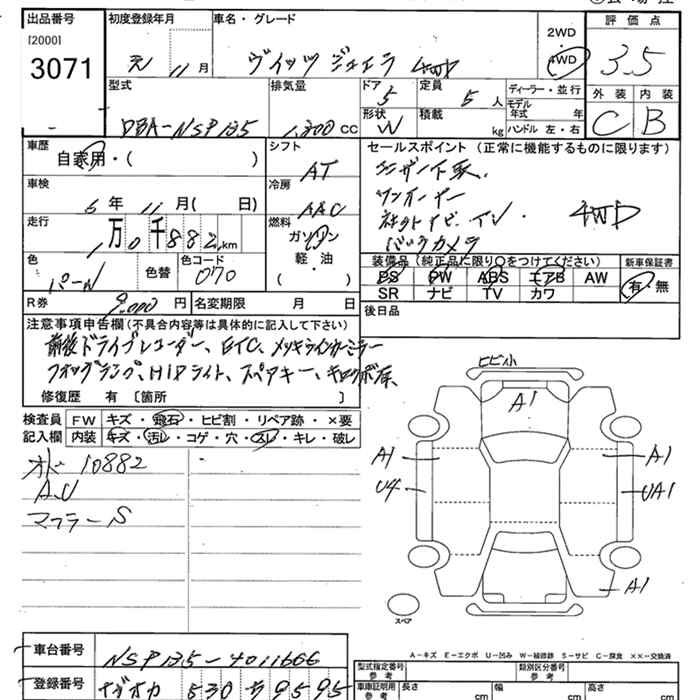 出品番号 初度登録年月 車名・グレード 2WD 4WD 評価点
[2000]
3071 元 11月 ヴィッツ ジュエラ 4WD 3.5
型式 排気量 ドア 定員 ディーラー・並行 外装 内装
DBA-NSP135 1,300 cc 5 5 人 モデル年式 年 C B
形状 W 積載 kg ハンドル 左・右
車歴 シフト セールスポイント (正常に機能するものに限ります)
自家用・( ) AT ユーザー下取、
車検 冷房 ワンオーナー
6年 11月( 日) AAC 社外ナビ TV 4WD
走行 燃料 バックカメラ
1万0千882km ガソリン
軽・油
( )
色 色替 色コード 装備品 (純正品に限り○をつけてください) 新車保証書
パール 070 PS PW ABS エアB AW 有・無
SR ナビ TV カワ
R券 9,000 円 名変期限 月 日 後日品
注意事項申告欄(不具合内容等は具体的に記入して下さい)
前後ドライブレコーダー、ETC、メッキウインカーミラー
フォグランプ、HIDライト、スペアキー、
修復歴 有 〔箇所 〕
検査員 FW キズ・飛石・ヒビ割・リペア跡・×要
記入欄 内装 キズ・汚レ・コゲ・穴・スレ・キレ・破レ
オド 10882
A.U
マフラーS
ヒビ小
A1
A1 A1
U4 UA1
A1
スペア
A-キズ E-エクボ U-凹み W-補修跡 S-サビ C-腐食 ××-交換済
車台番号 NSP135-4011666
登録番号 530 ち 9595
型式指定番号 類別区分番号
車庫証明用 参考 長さ cm 幅 cm 高さ cm